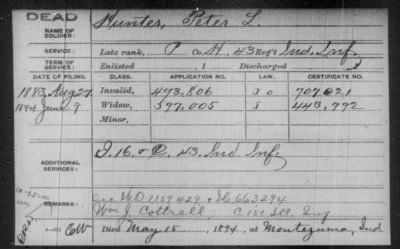 DEAD
NAME OF SOLDIER: Hunter, Peter L.
SERVICE: Late rank, P Co. H, 43 Reg't Ind. Inf.
TERM OF SERVICE: Enlisted , 1 Discharged , 1
DATE OF FILING. CLASS. APPLICATION NO. LAW. CERTIFICATE NO.
1883 Aug 27 Invalid, 493.806 J o 707021
1894 June 9 Widow, 597.005 S 443,992
Minor,
ADDITIONAL SERVICES: J. 16. + C. 43. Ind Inf.
REMARKS: W.O. 1159429 + 663294
Wm J. Cottrell C 131 Ill. Inf
Died May 15, 1894, at Montezuma, Ind